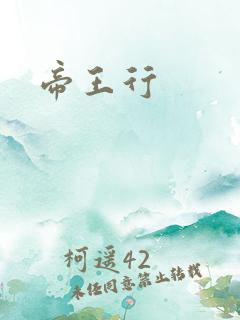 帝王行
柯遥42
未经同意禁止转载